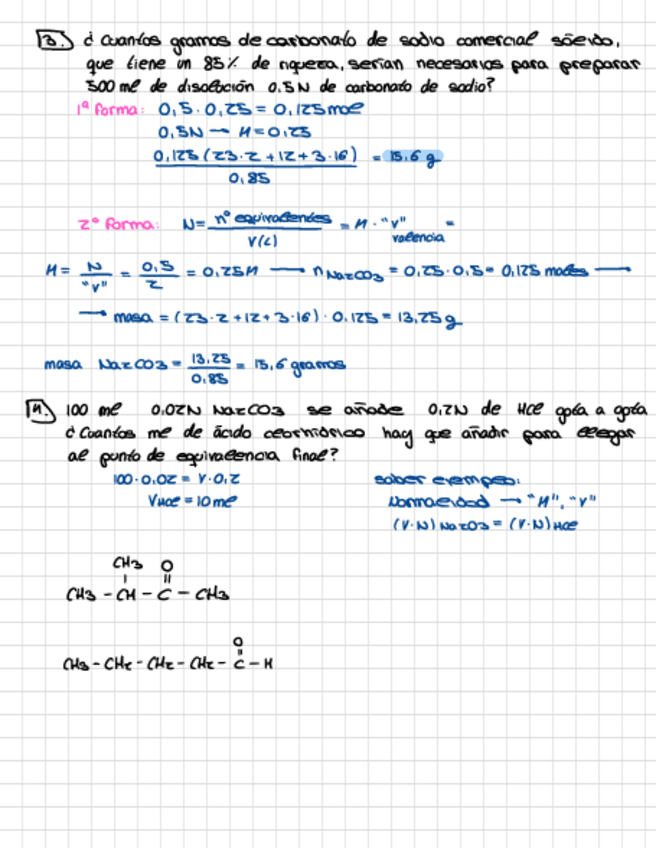 3. ¿Cuantos gramos de carbonato de sodio comercial sólido,
que tiene un 85% de riqueza, serían necesarios para preparar
500 ml de disolución 0.5N de carbonato de sodio?
1ª forma: 0,5 · 0,25 = 0,125 mol
0,5N → M=0,25
0,125 (23·2+12+3·16) = 15,6 g
0,85
2ª forma: N = nº equivalentes = M · "v" =
V(L) valencia
M = N = 0,5 = 0,25M → n Na2CO3 = 0,25 · 0,5 = 0,125 moles →
"v" 2
→ masa = (23·2+12+3·16) · 0.125 = 13,25 g
masa Na2CO3 = 13.25 = 15,6 gramos
0.85
4. 100 ml 0.02N Na2CO3 se añade 0,2N de HCl gota a gota
¿Cuantos ml de ácido clorhídrico hay que añadir para llegar
al punto de equivalencia final?
100 · 0.02 = V · 0,2 saber ejemplo:
VHCl = 10 ml Normalidad → "M", "v"
(V·N) Na2O3 = (V·N) HCl
CH3 O
CH3 - CH - C - CH3
O
CH3 - CH2 - CH2 - CH2 - C - H